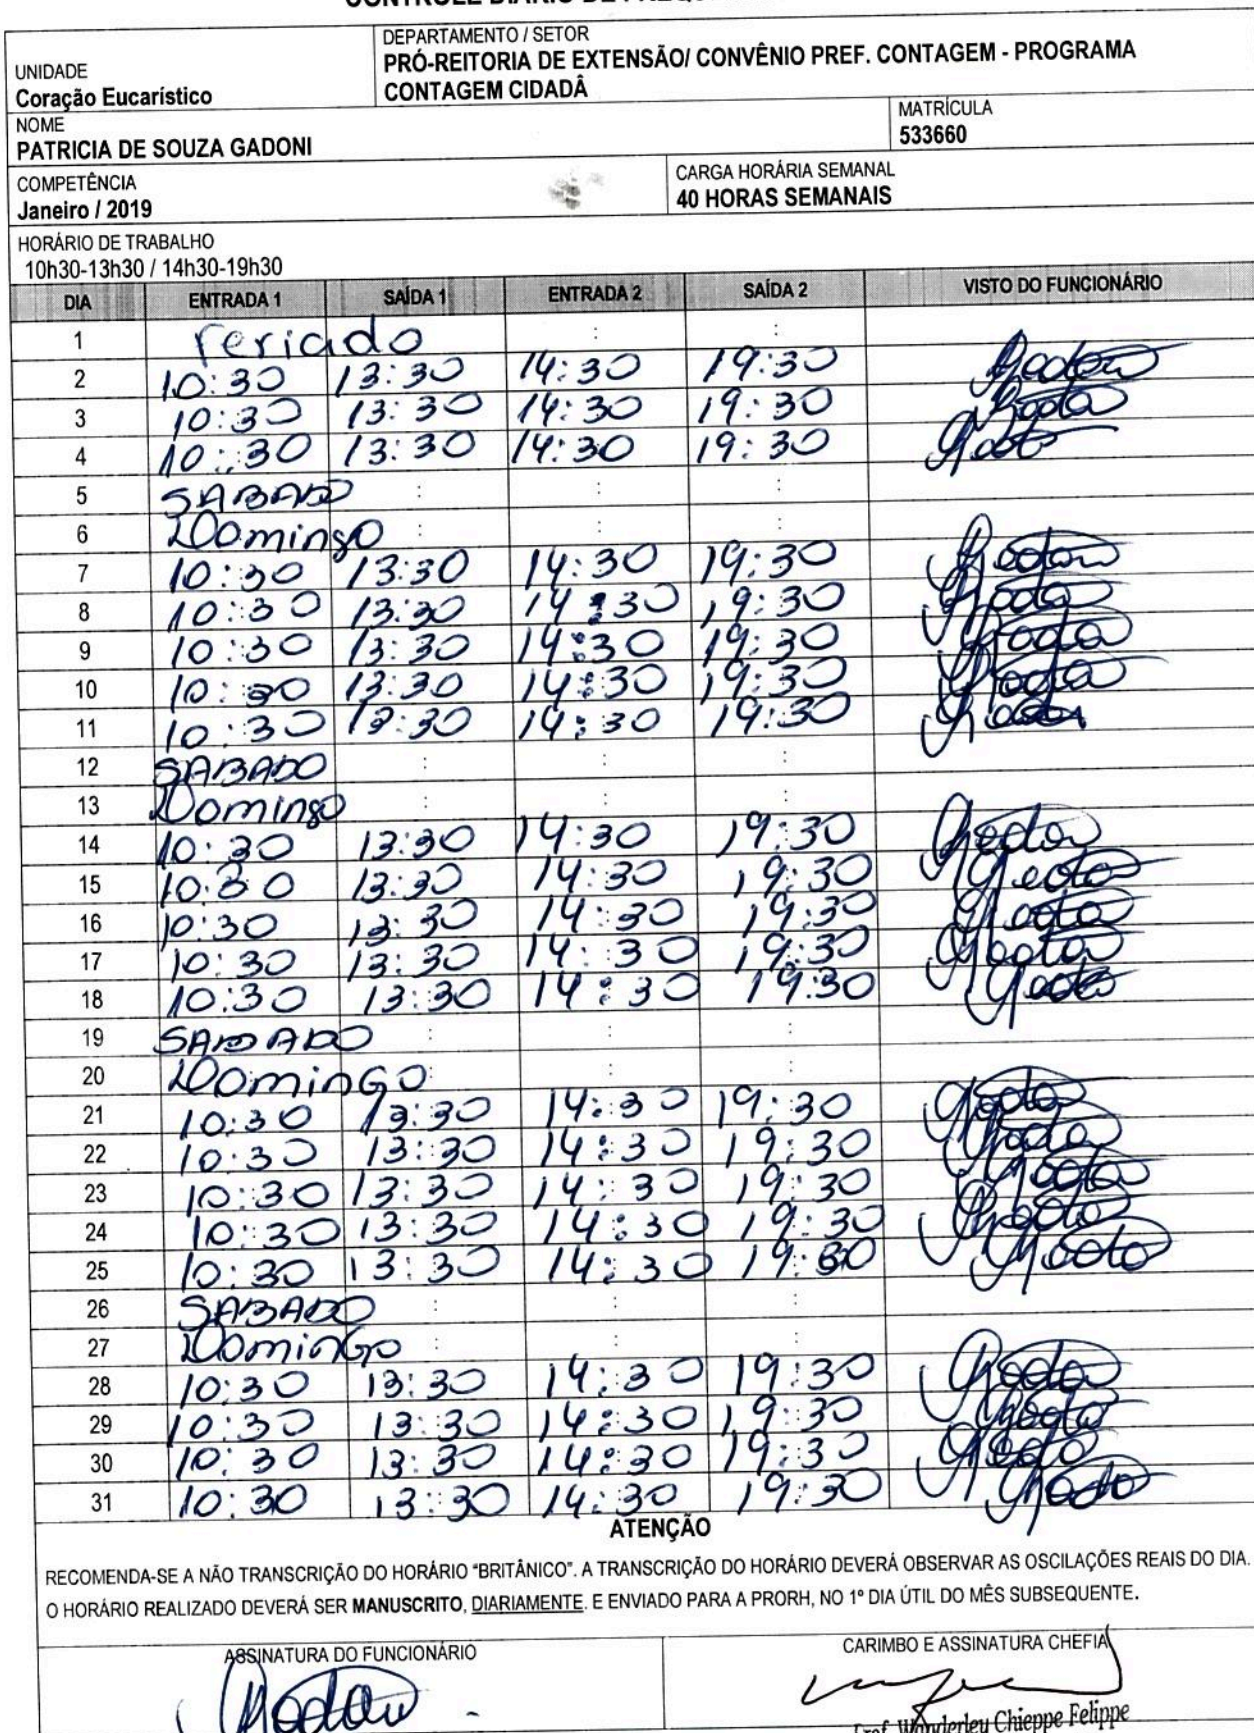 CONTROLE DIÁRIO DE
UNIDADE
Coração Eucarístico
DEPARTAMENTO / SETOR
PRÓ-REITORIA DE EXTENSÃO/ CONVÊNIO PREF. CONTAGEM - PROGRAMA
CONTAGEM CIDADÂ
NOME
PATRICIA DE SOUZA GADONI
MATRÍCULA
533660
COMPETÊNCIA
Janeiro / 2019
CARGA HORÁRIA SEMANAL
40 HORAS SEMANAIS
HORÁRIO DE TRABALHO
10h30-13h30 / 14h30-19h30
DIA ENTRADA 1 SAÍDA 1 ENTRADA 2 SAÍDA 2 VISTO DO FUNCIONÁRIO
1 Feriado : :
2 10:30 13:30 14:30 19:30
3 10:30 13:30 14:30 19:30
4 10:30 13:30 14:30 19:30
5 SABADO : : :
6 Domingo : : :
7 10:30 13:30 14:30 19:30
8 10:30 13:30 14:30 19:30
9 10:30 13:30 14:30 19:30
10 10:30 13:30 14:30 19:30
11 10:30 13:30 14:30 19:30
12 SABADO : : :
13 Domingo : : :
14 10:30 13:30 14:30 19:30
15 10:30 13:30 14:30 19:30
16 10:30 13:30 14:30 19:30
17 10:30 13:30 14:30 19:30
18 10:30 13:30 14:30 19:30
19 SABADO : : :
20 DominGO : : :
21 10:30 13:30 14:30 19:30
22 10:30 13:30 14:30 19:30
23 10:30 13:30 14:30 19:30
24 10:30 13:30 14:30 19:30
25 10:30 13:30 14:30 19:30
26 SABADO : : :
27 DominGo : : :
28 10:30 13:30 14:30 19:30
29 10:30 13:30 14:30 19:30
30 10:30 13:30 14:30 19:30
31 10:30 13:30 14:30 19:30
ATENÇÃO
RECOMENDA-SE A NÃO TRANSCRIÇÃO DO HORÁRIO "BRITÂNICO". A TRANSCRIÇÃO DO HORÁRIO DEVERÁ OBSERVAR AS OSCILAÇÕES REAIS DO DIA.
O HORÁRIO REALIZADO DEVERÁ SER MANUSCRITO, DIARIAMENTE. E ENVIADO PARA A PRORH, NO 1º DIA ÚTIL DO MÊS SUBSEQUENTE.
ASSINATURA DO FUNCIONÁRIO
CARIMBO E ASSINATURA CHEFIA
Prof. Wanderley Chieppe Felippe